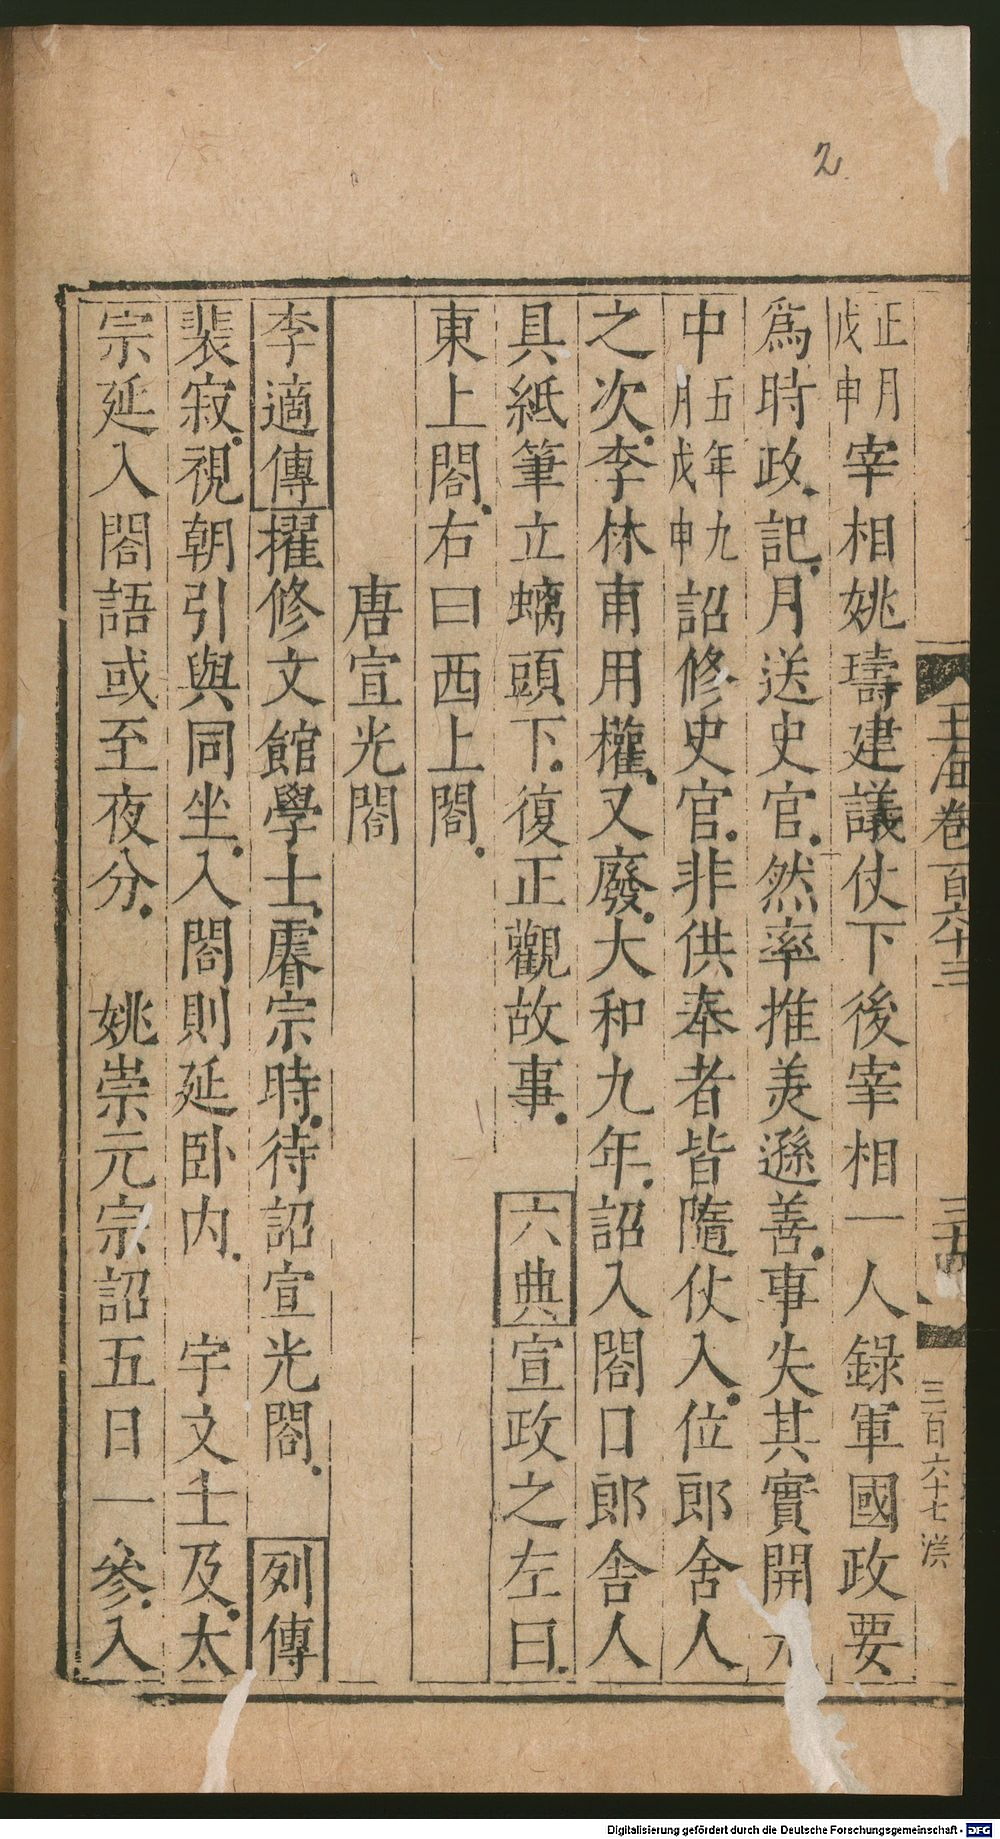 2
玉海卷一百六十三
三百六十七
正月戊申宰相姚璹建議仗下後宰相一人錄軍國政要
爲時政記月送史官然率推美遜善事失其實開元
中五年九月戊申詔修史官非供奉者皆隨仗入位郎舍人
之次李林甫用權又廢大和九年詔入閤口郎舎人
具紙筆立螭頭下復正觀故事 六典宣政之左曰
東上閤右曰西上閤
唐宣光閤
李適傳擢修文館學士睿宗時待詔宣光閤 列傳
裴寂視朝引與同坐入閤則延卧内 宇文士及太
宗延入閤語或至夜分 姚崇元宗詔五日一參入
Digitalisierung gefördert durch die Deutsche Forschungsgemeinschaft - DFG